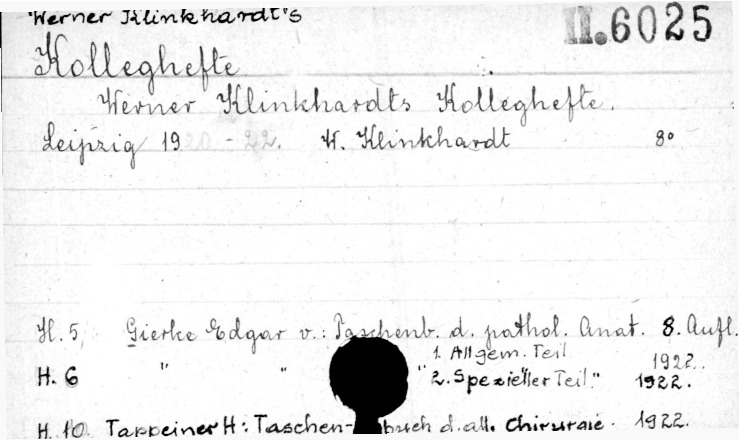 Werner Klinkhardt's II.6025
Kolleghefte
Werner Klinkhardts Kolleghefte.
Leipzig 1920-22. W. Klinkhardt 8°
H. 5, Gierke Edgar v.: Taschenb. d. pathol. Anat. 8. Aufl.
1. Allgem. Teil 1922.
H. 6 " " " 2. Spezieller Teil " 1922.
H. 10. Tappeiner H: Taschen- buch d. all. Chirurgie. 1922.